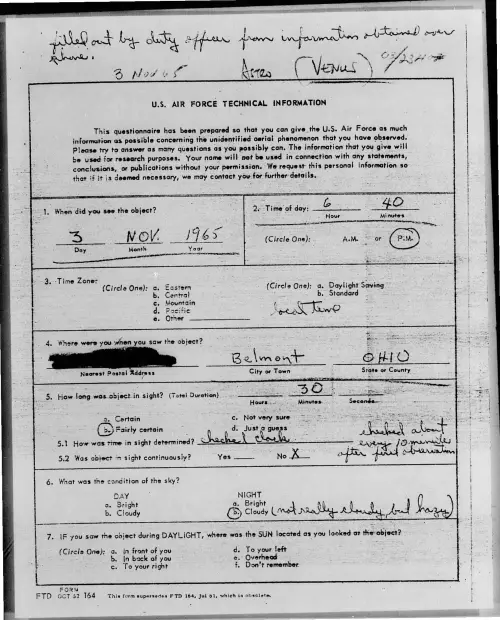 filled out by duty officer from information obtained over
phone.
3 NOV 65 ASTRO (VENUS)
U.S. AIR FORCE TECHNICAL INFORMATION
This questionnaire has been prepared so that you can give the U.S. Air Force as much
information as possible concerning the unidentified aerial phenomenon that you have observed.
Please try to answer as many questions as you possibly can. The information that you give will
be used for research purposes. Your name will not be used in connection with any statements,
conclusions, or publications without your permission. We request this personal information so
that if it is deemed necessary, we may contact you for further details.
1. When did you see the object?
3 NOV. 1965
Day Month Year
2. Time of day: 6 40
Hour Minutes
(Circle One): A.M. or P.M.
3. Time Zone:
(Circle One): a. Eastern
b. Central
c. Mountain
d. Pacific
e. Other
(Circle One): a. Daylight Saving
b. Standard
local time
4. Where were you when you saw the object?
Belmont OHIO
Nearest Postal Address City or Town State or County
5. How long was object in sight? (Total Duration) 30
Hours Minutes Seconds
a. Certain c. Not very sure
b. Fairly certain d. Just a guess
5.1 How was time in sight determined? checked clock
5.2 Was object in sight continuously? Yes No X
checked about
every 10 minute
after first observation
6. What was the condition of the sky?
DAY NIGHT
a. Bright a. Bright
b. Cloudy b. Cloudy (not really cloudy, but hazy)
7. IF you saw the object during DAYLIGHT, where was the SUN located as you looked at the object?
(Circle One): a. In front of you d. To your left
b. In back of you e. Overhead
c. To your right f. Don't remember
FORM
FTD OCT 62 164 This form supersedes FTD 164, Jul 61, which is obsolete.